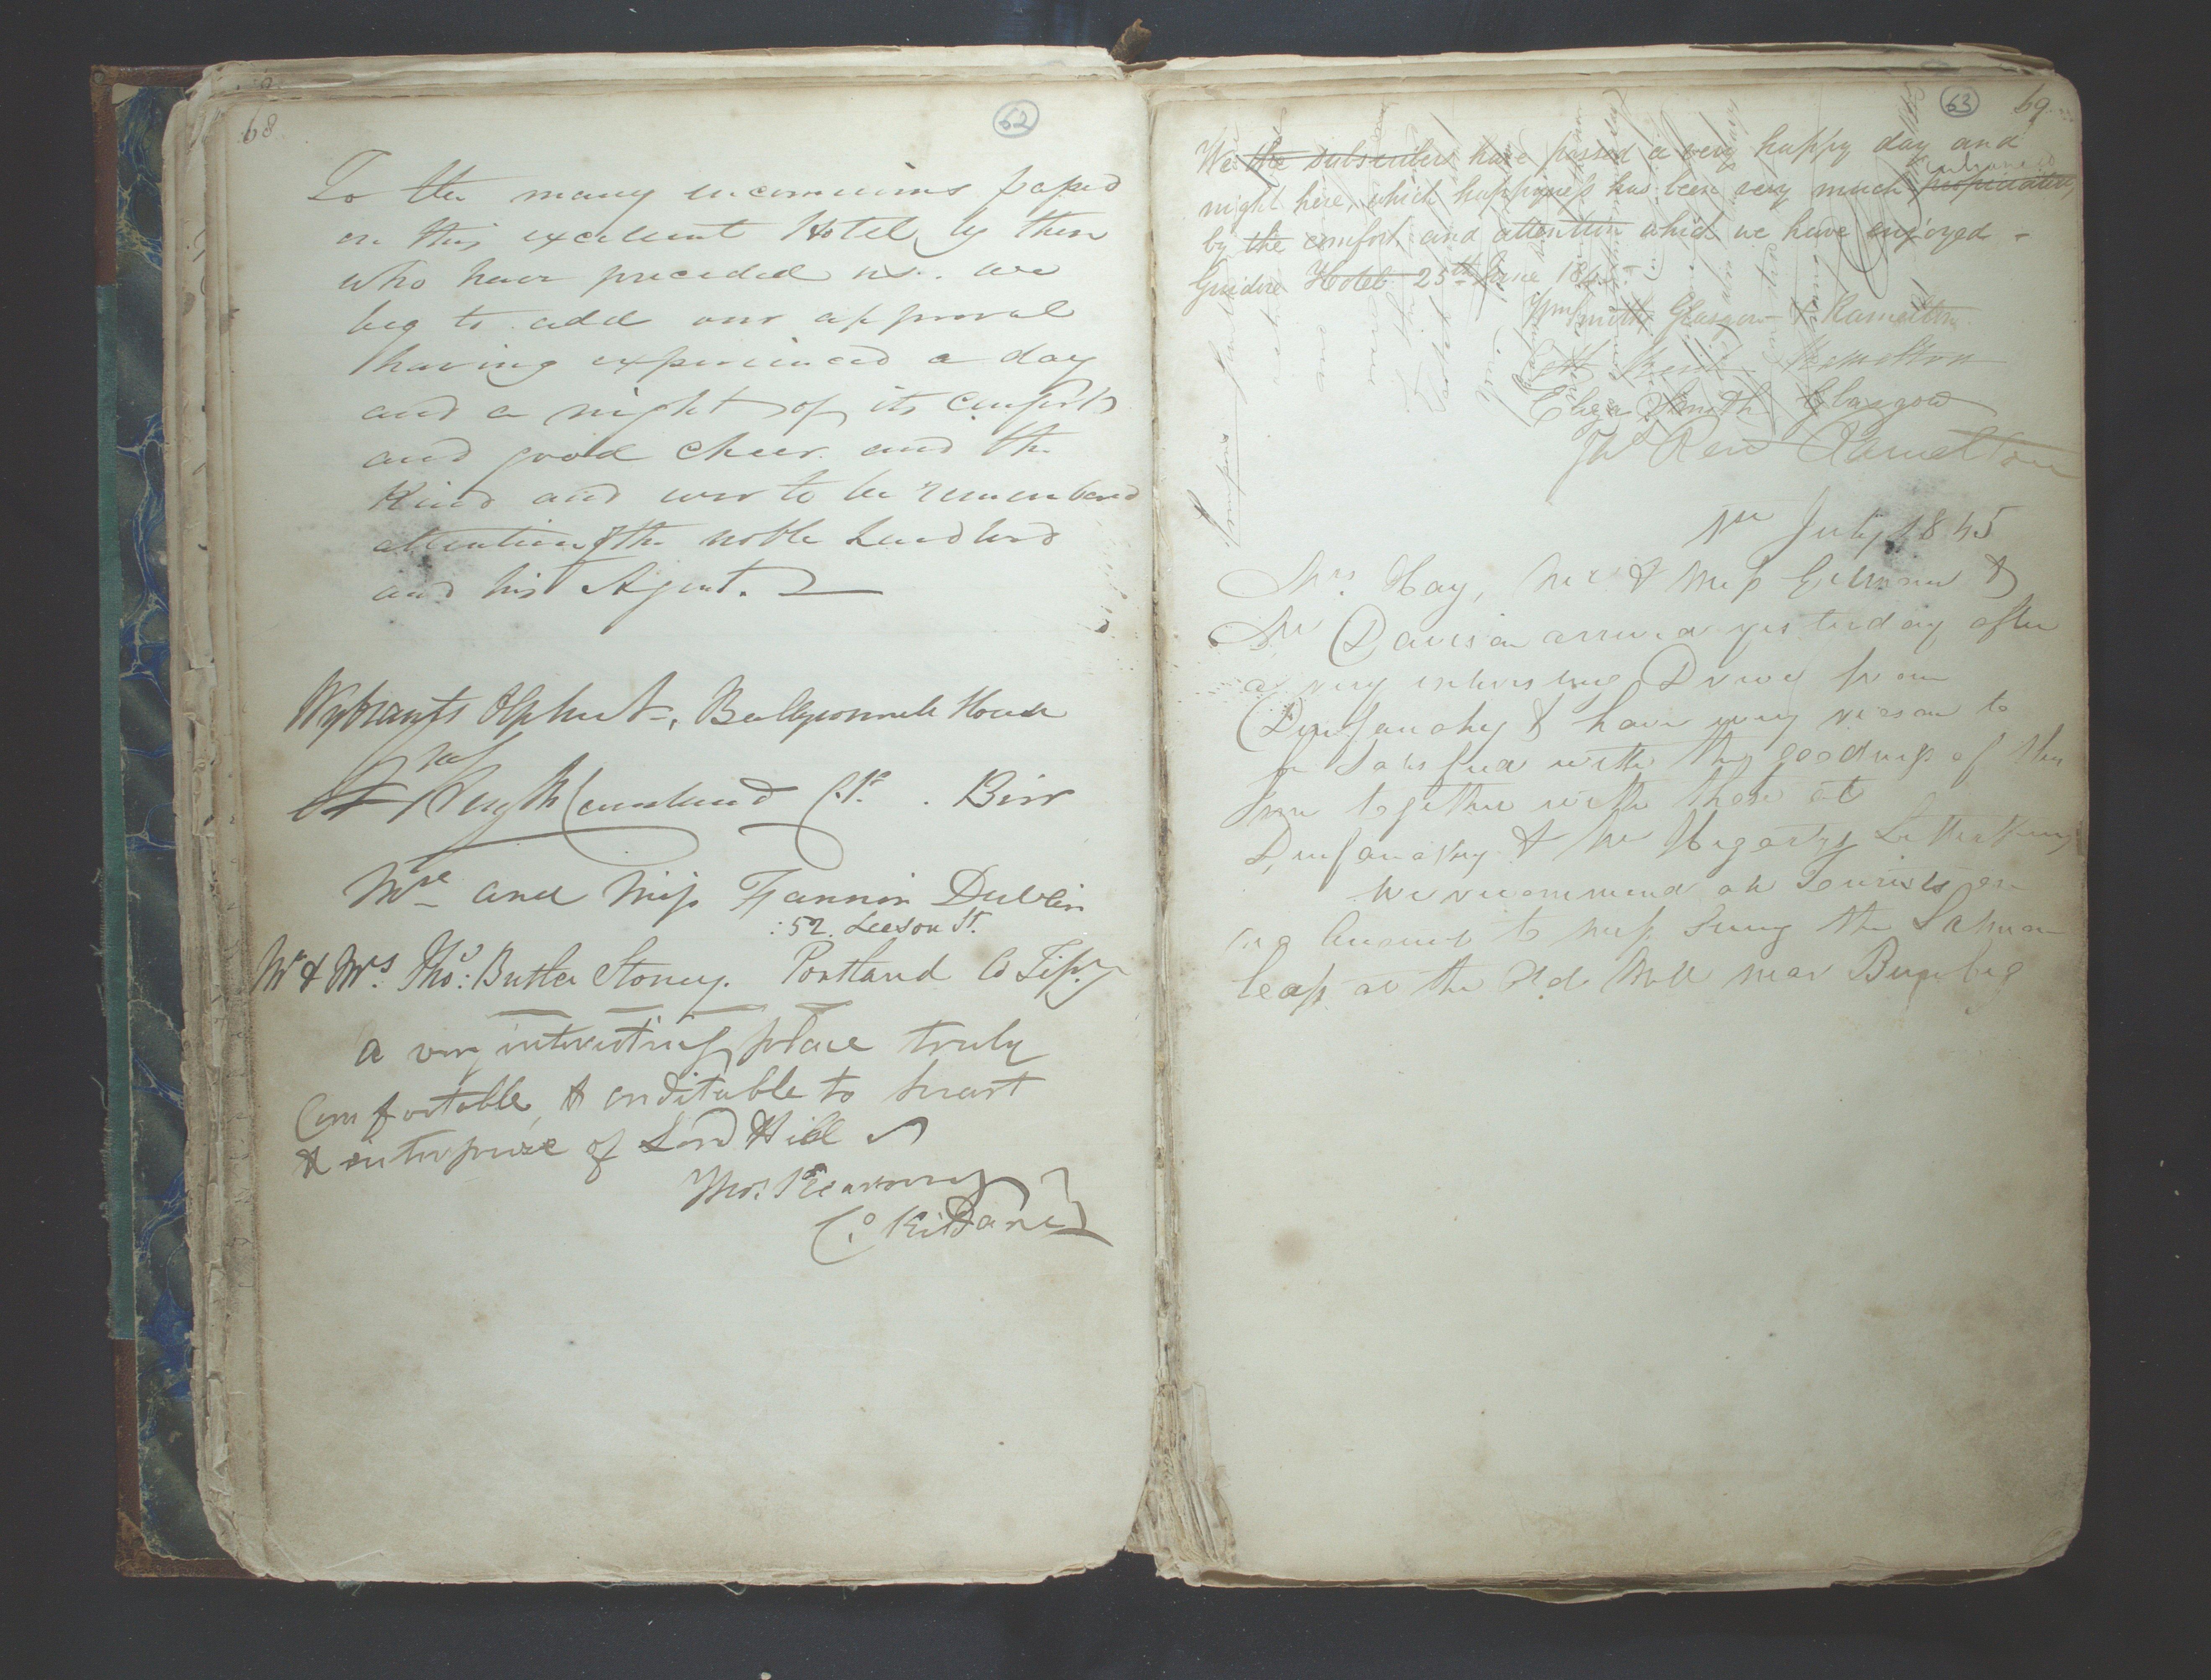 68
62
To the many encomiums passed
on this excellent Hotel by those
who have preceded us. we
beg to add our approval
having experienced a day
and a night of its comforts
and good cheer and the
kind and ever to be remembered
attention of the noble Landlord
and his Agent.
Wybrants Olphert, Ballyconnell House
Birr
Mrs and Miss Fannin Dublin
52. Leeson St.
Mr & Mrs. Thos: Butler Stoney. Portland Co Tipy
A very interesting place truly
Comfortable & creditable to heart
& enterprise of Lord Hill
Thos. Kearney
Co. Kildare
63
69
We the subscribers have passed a very happy day and
night here, which happiness has been very much enhanced
by the comfort and attention which we have enjoyed -
Guidore Hotel 25th June 1845
Wm Smith Glasgow & Ramelton
Ramelton
Eliza Smith Glasgow
Ramelton
1st July 1845
Mrs. Hay, Mr & Miss &
Mr Davison arrived yesterday after
a very Drive from
Dunfanaghy & have every reason to
be satisfied with the goodness of this
Inn together with those at
Dunfanaghy & Mr Hegartys Letterkenny
We recommend all Tourists on
no Account to miss seeing the Salmon
leap at the Old Mill near Bunbeg